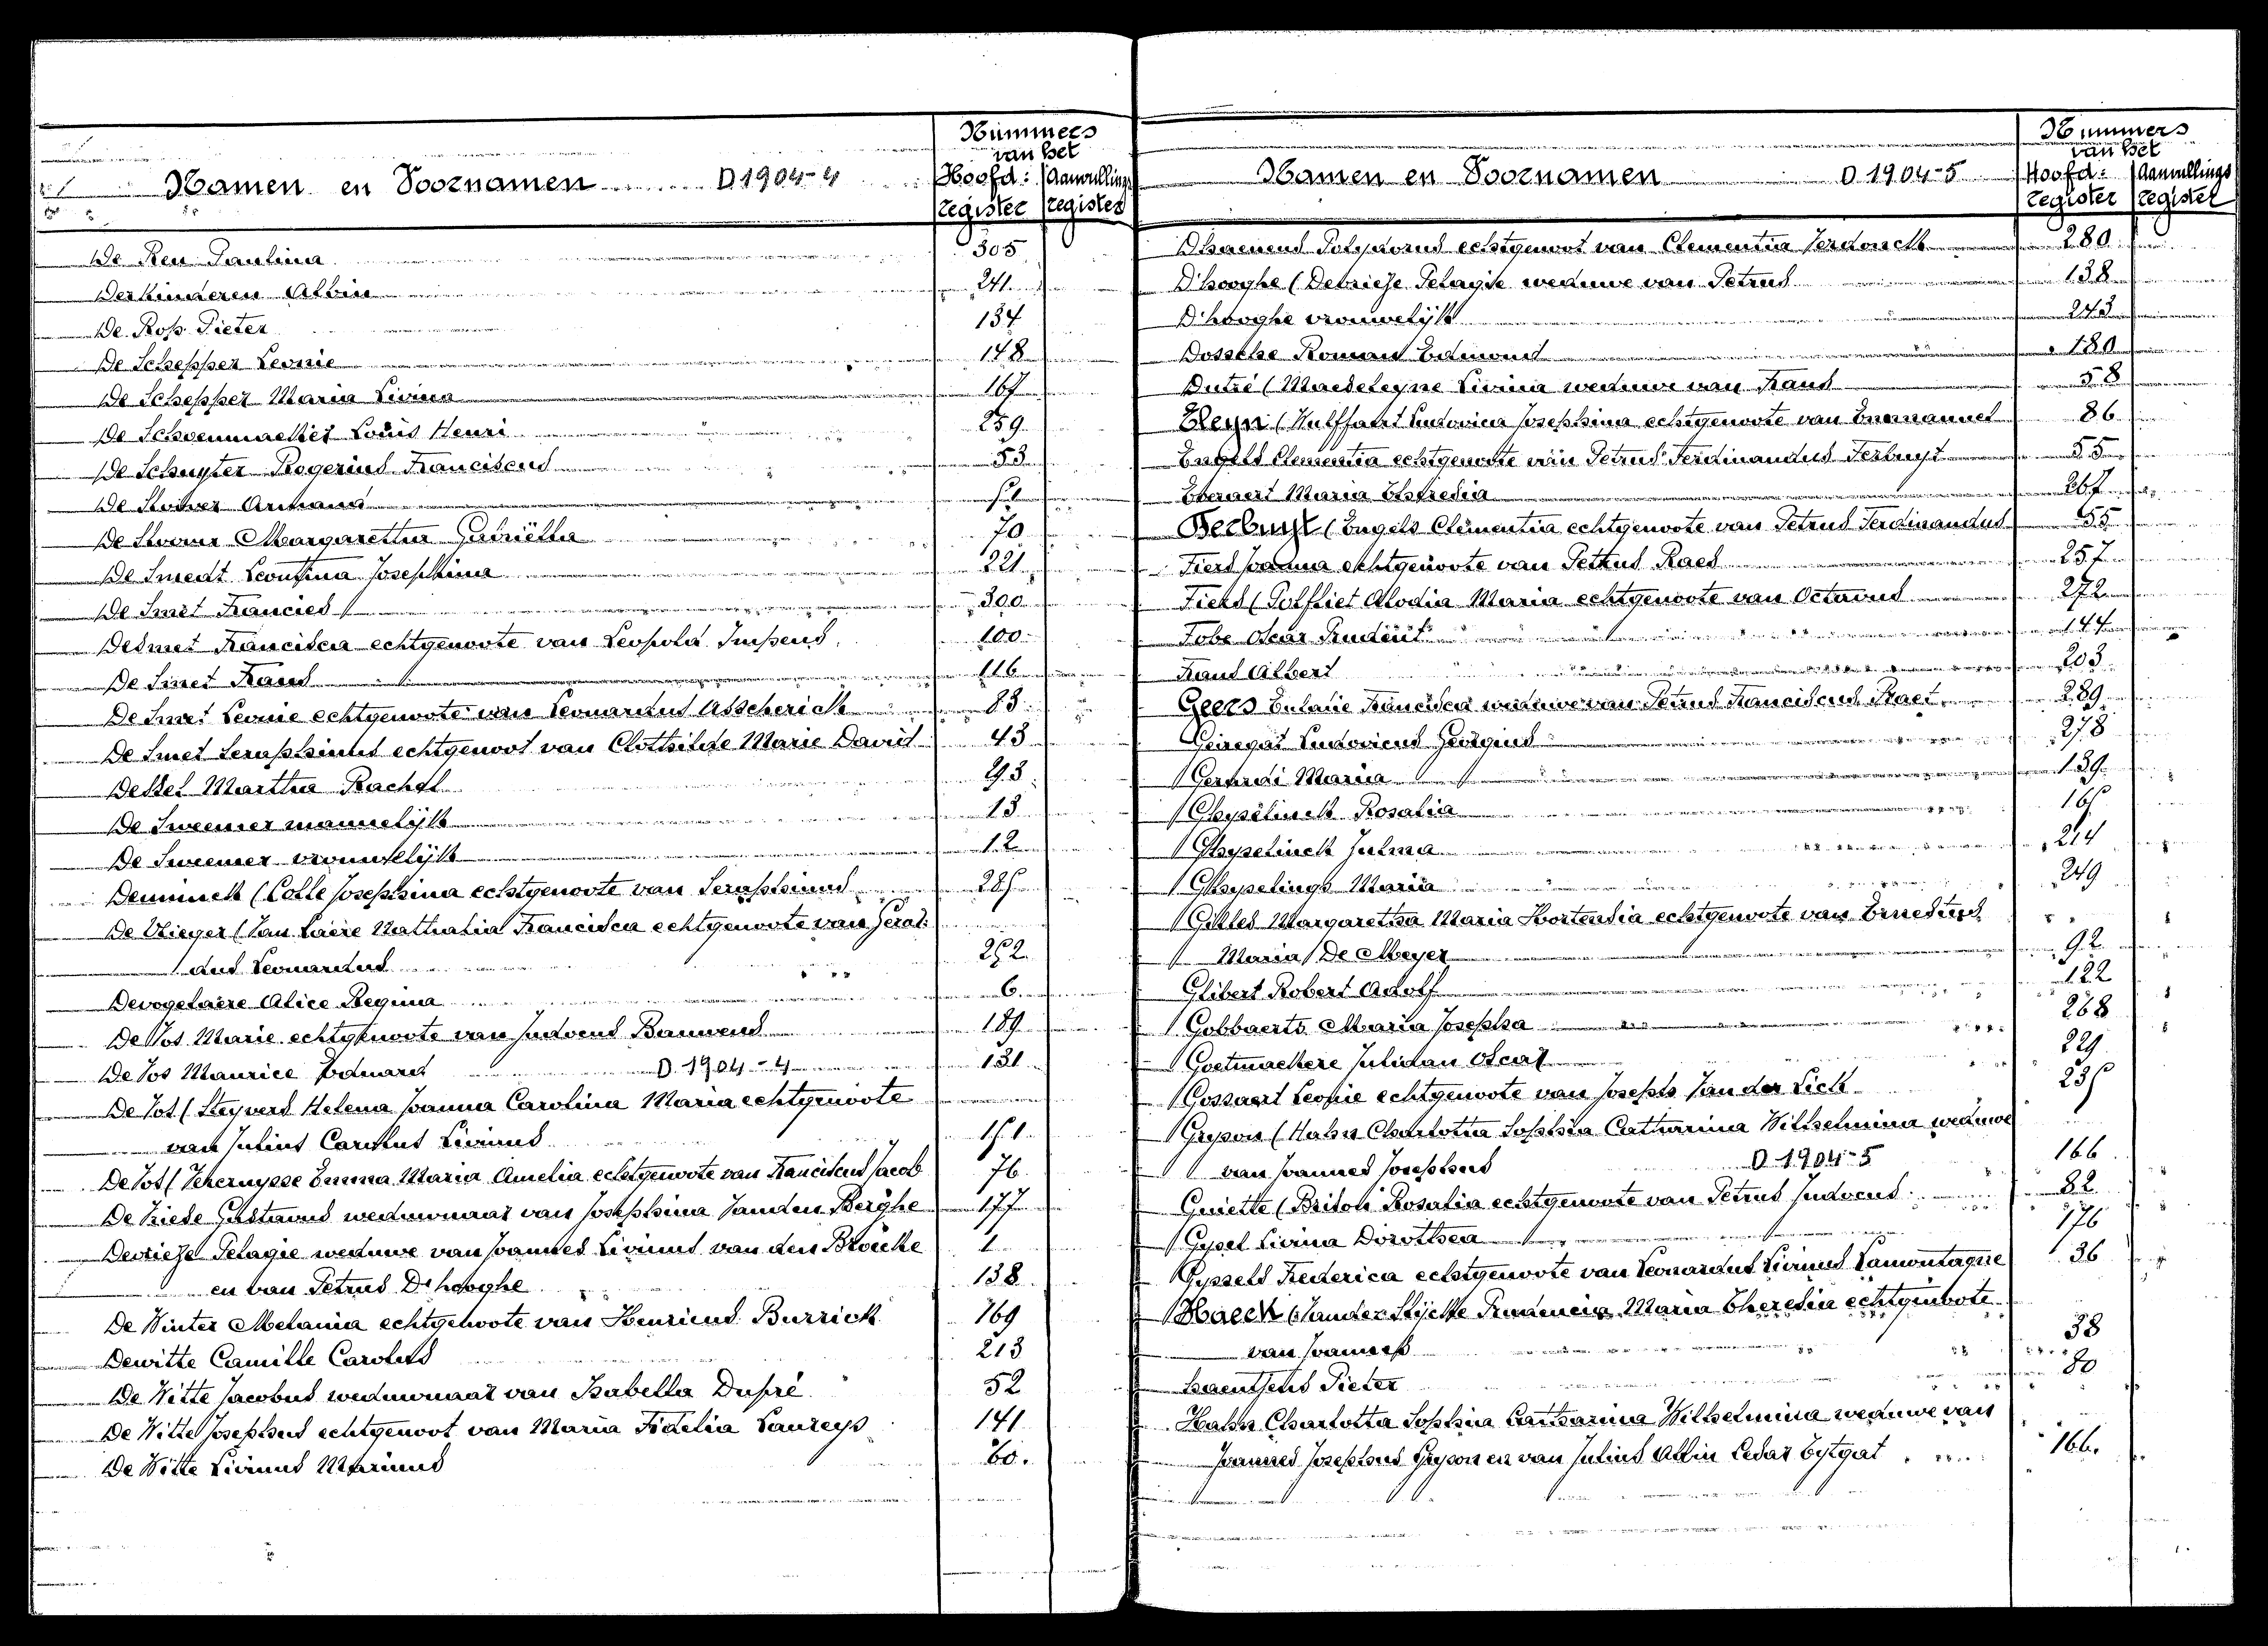 Nummers
van het
Namen en Voornamen D 1904-4 Hoofd: Aanvullings
register register
De Reu Paulina 305
Derkinderen Albin 241
De Ros Pieter 134
De Schepper Leonie 148
De Schepper Maria Livina 167
De Schoenmaeker Louis Henri 259
De Schuyter Rogerius Franciscus 53
De Armand
De Margaretha Gabriëlla 70
De Smedt Leontina Josephina 221
De Smet Francies 300
Desmet Francisca echtgenoote van Leopold 100
De Smet Frans 116
De Smet Leonie echtgenoote van Leonardus Asscherick 83
De Smet Seraphinus echtgenoot van Clothilde Marie David 43
Martha Rachel 293
De Sweemer mannelijk 13
De Sweemer vrouwelijk 12
Deuninck (Colle Josephina echtgenoote van Seraphinus
De Vlieger (Van Laere Nathalia Francisca echtgenoote van Gerar-
dus Leonardus 252
Devogelaere Alice Regina 6
De Vos Marie echtgenoote van Judocus Bauwens 189
De Vos Maurice Eduard D 1904-4 131
De Vos (Steyvers Helena Joanna Carolina Maria echtgenoote
van Julius Livinus 151
De Vos (Verheruysse Emma Maria Amelia echtgenoote van Franciscus Jacob 76
De Vriese Gustavus weduwnaar van Josephina Vanden Berghe 177
Devriese Pelagie weduwe van Joannes Livinus van den Broucke 1
en van Petrus D'hooghe 138
De Winter Melania echtgenoote van Henricus Burrick 169
Dewitte Camille Carolus 213
De Witte Jacobus weduwnaar van Isabella Dupré 52
De Witte Josephus echtgenoot van Maria Fidelia Laureys 141
De Witte Livinus 60.
Nummers
van het
Namen en Voornamen D 1904-5 Hoofd: Aanvullings
register register
Polydorus echtgenoot van Clementia 280
D'hooghe (Devriese Pelagie weduwe van Petrus 138
D'hooghe vrouwelijk 243
Dossche Roman Edmond 180
Dutré (Maedeleyne Livina weduwe van Frans 58
Eleyn (Hulffaert Ludovica Josephina echtgenoote van Emmanuel 86
Engels Clementia echtgenoote van Petrus Ferdinandus Verbuyst 55
Everaert Maria 267
(Engels Clementia echtgenoote van Petrus Ferdinandus 55
Fiers Joanna echtgenoote van Petrus Raes 257
Fiers (Polfliet Alodia Maria echtgenoote van Octavus 272
Fobe Oscar Prudent 144
Frans Albert 203
Geers Eulalie Francisca weduwe van Petrus Franciscus Praet 289
Geiregat Ludovicus Georgius 278
Maria 139
Ghyselinck Rosalia
Ghyselinck Julma 214
Ghyselings Maria 249
Gilles Margaretha Maria Hortensia echtgenoote van Benedictus
Maria De Meyer 92
Glibert Robert Adolf 122
Gobbaerts Maria Josepha 268
Goetmaekere Julidan Oscar 229
Gossaert Leonie echtgenoote van Joseph Van der Eick
Gryson (Hahn Charlotta Sophia Catharina Wilhelmina weduwe
van Joannes Josephus D 1904-5 166
Guiette (Briton Rosalia echtgenoote van Petrus Judocus 82
Gysel Livina Dorothea 176
Gyssels Frederica echtgenoote van Leonardus Livinus Lamontagne 36
Haeck (Vander Stycke Prudencia Maria Theresia echtgenoote
van Joannes 38
Haentjens Pieter 80
Hahn Charlotta Sophia Catharina Wilhelmina weduwe van
Joannes Josephus Gryson en van Julius Albin Cesar Eytgat 166.